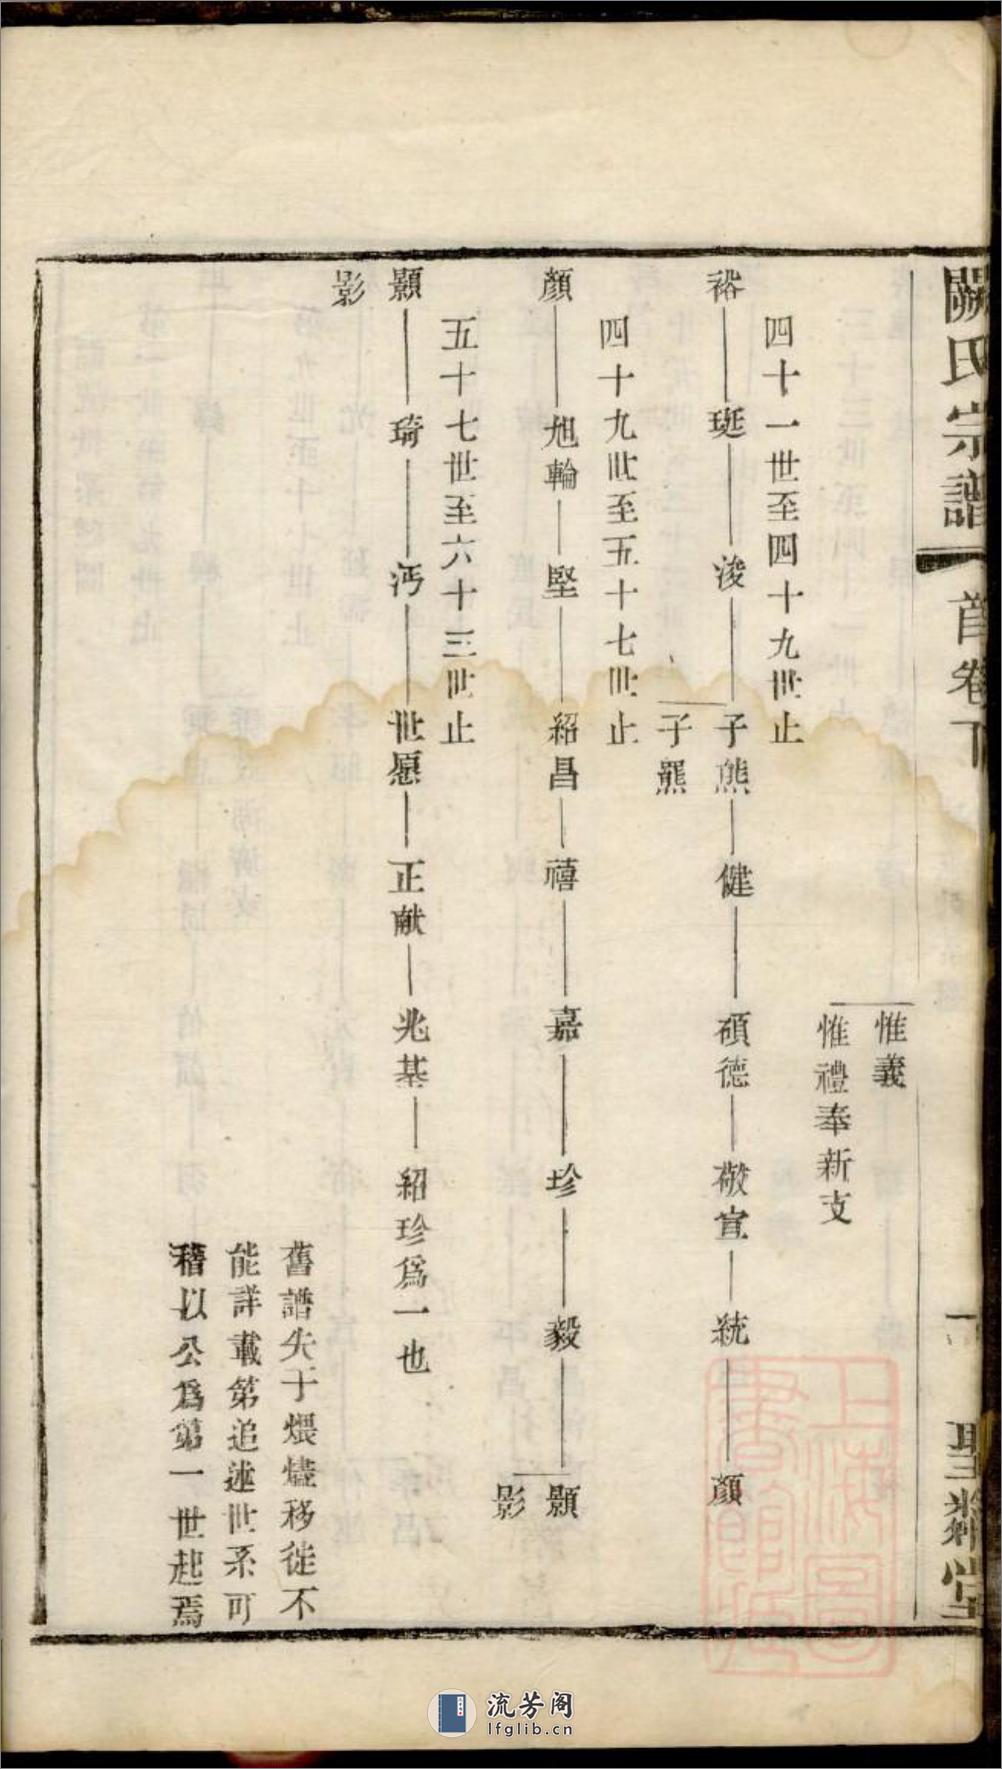 闞氏宗譜
首卷下
一
聖繼堂
惟義
惟禮奉新支
四十一世至四十九世止
裕 珽 浚 子熊 健 碩德 敬宣 統 顏
子羆
四十九世至五十七世止
顏 旭輪 堅 紹昌 禧 嘉 珍 毅 顥
影
五十七世至六十三世止
顥 琦 沔 世愿 正献 兆基 紹珍爲一也
影
舊譜失于煨燼移徙不
能詳載第追述世系可
稽以公爲第一世起焉
上海圖
書館藏
流芳阁
lfglib.cn